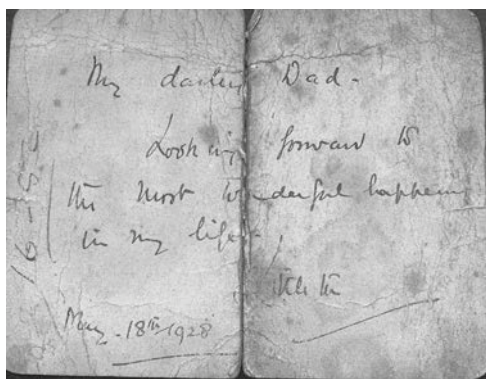 My darling Dad.
Looking forward to
the most wonderful happening
in my life,
May - 18th 1928